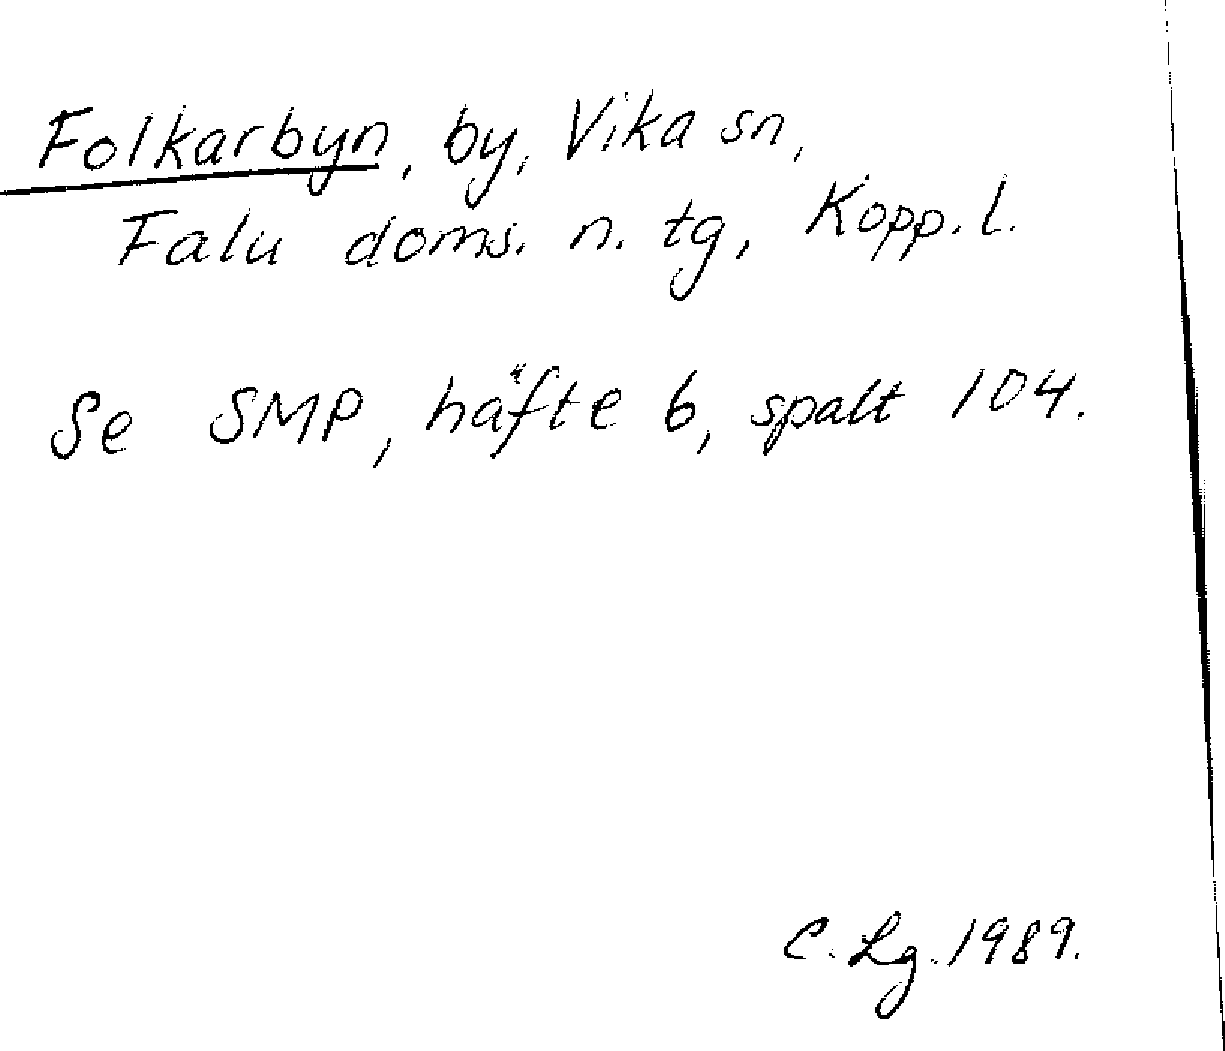 Folkarbyn, by, Vika sn,
Falu doms. n. tg, Kopp. l.
Se SMP, häfte 6, spalt 104.
C. Lg. 1989.